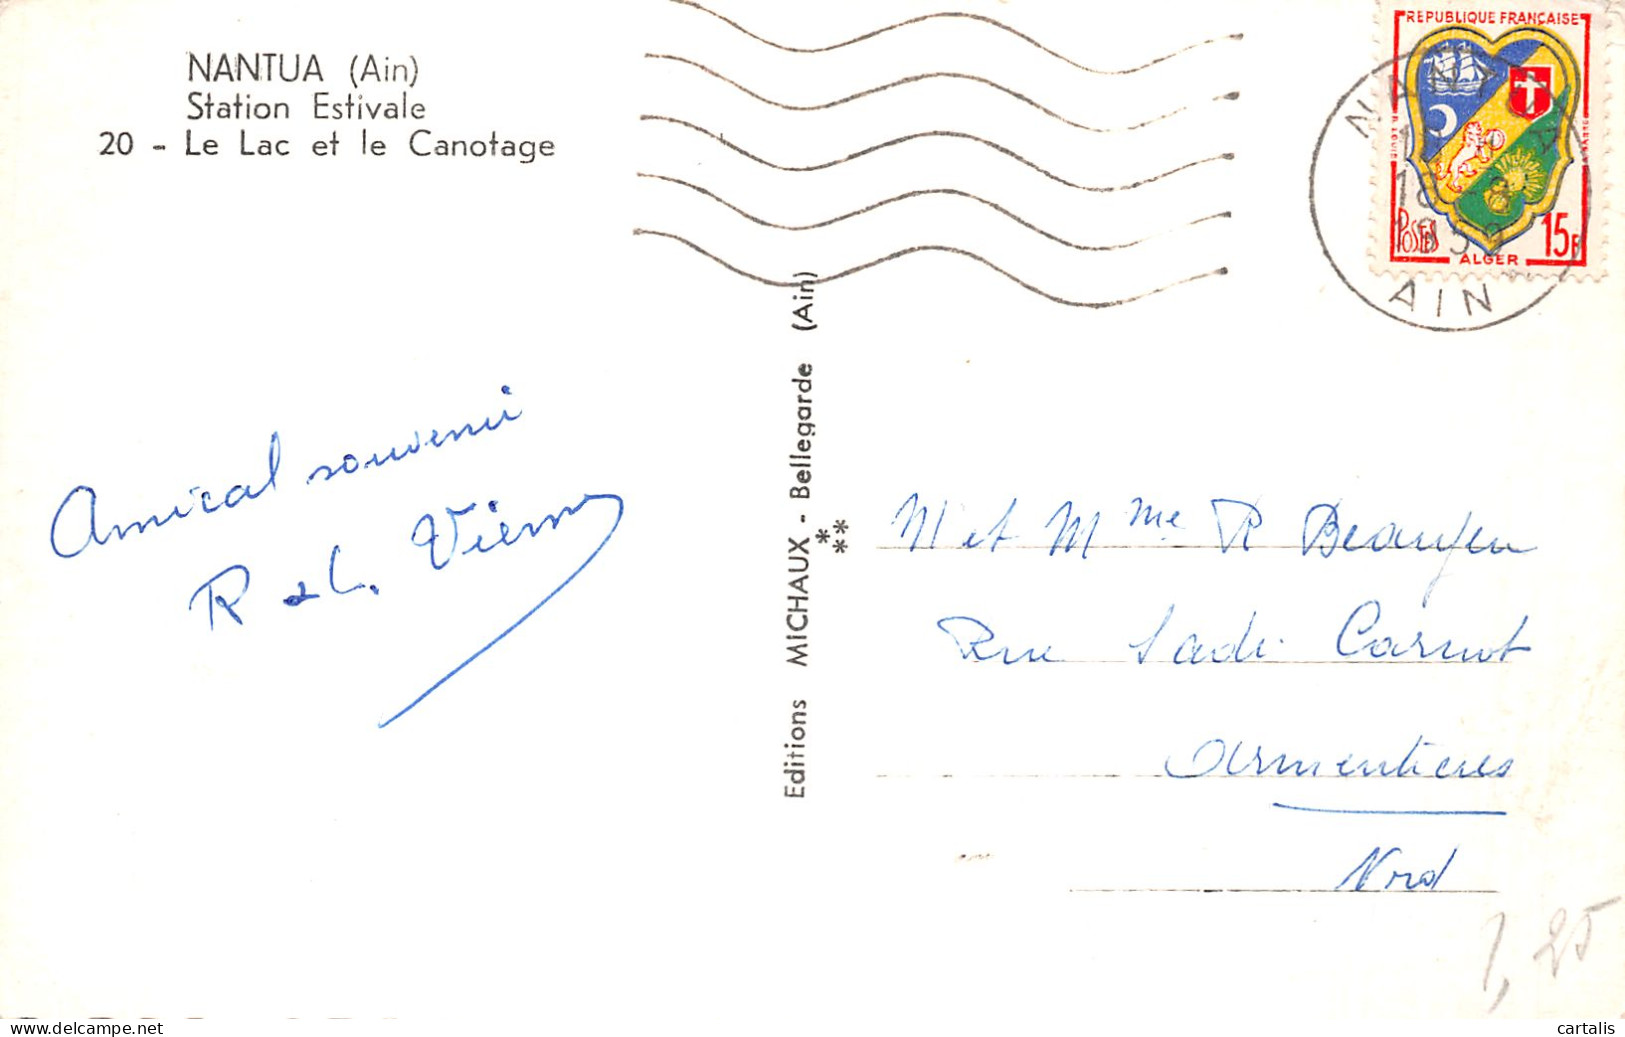 NANTUA (Ain)
Station Estivale
20 - Le Lac et le Canotage
REPUBLIQUE FRANÇAISE
POSTES
15F
ALGER
NANTUA
18 -8
1959
AIN
Amical souvenir
R & L.
Editions MICHAUX - Bellegarde (Ain)
M et Mme R
Rue Sadi Carnot
Armentieres
Nord
1,25
Delcampe.net
cartalis